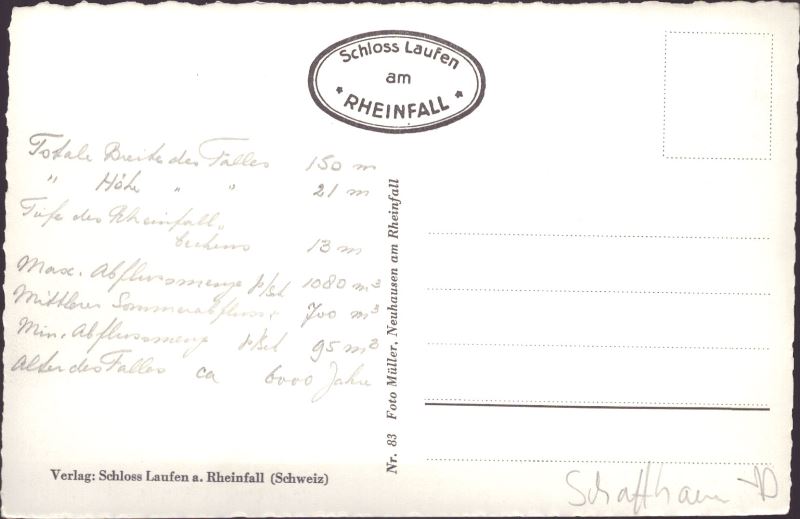 Schloss Laufen
am
* RHEINFALL *
Totale Breite des Falles 150 m
" Höhe " " 21 m
Tiefe des Rheinfall„
beckens 13 m
Max. Abflussmenge p/Sek 1080 m³
Mittlerer Sommerabfluss: 700 m³
Min. Abflussmeng p/Sek 95 m³
Alter des Falles ca 6000 Jahre
Nr. 83 Foto Müller, Neuhausen am Rheinfall
Verlag: Schloss Laufen a. Rheinfall (Schweiz)
Schaffhausen